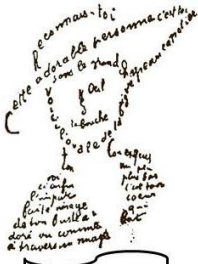 Reconnais-toi
Cette adorable personne c'est toi
sous le grand chapeau canotier
Oeil
Nez
la bouche
Voici l'ovale de ta figure
Ton Cou exquis
Voi
ci enfin
l'impar
faite image
de ton buste a
doré vu comme
à travers un nuage
un
peu
plus bas
c'est ton
coeur
qui
bat